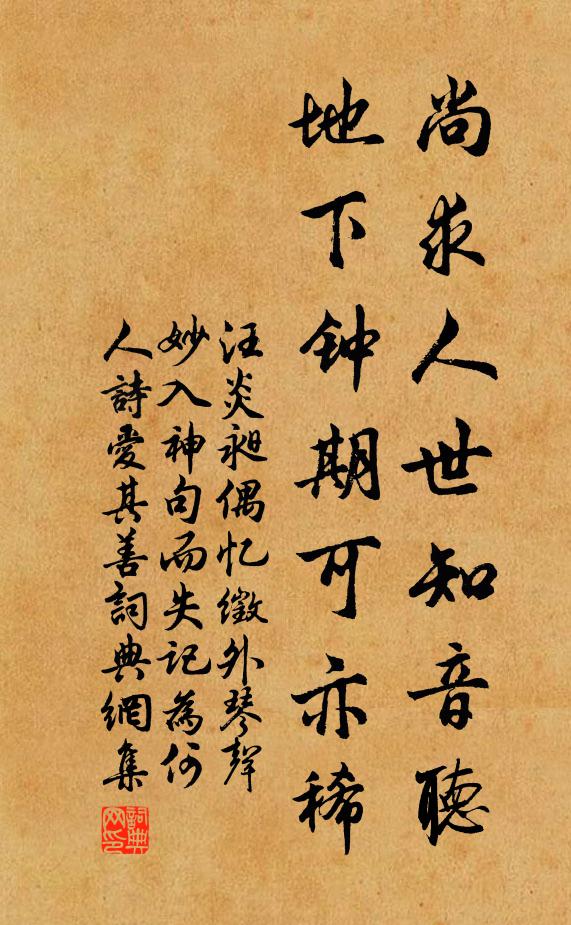 尚求人世知音聽
地下钟期可亦稀
汪炎昶偶忆徽外琴聲
妙入神句而失记為何
人詩愛其善詞典網集
詞典网印